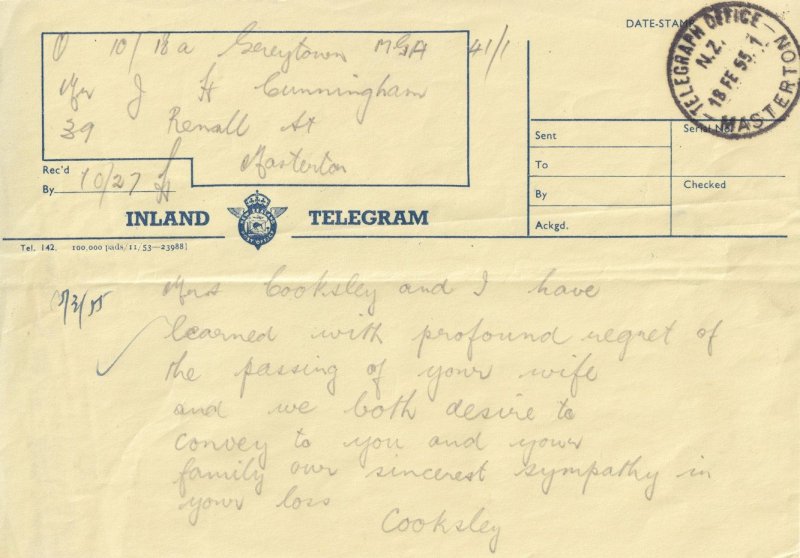 O 10/18a Greytown MGA 41/1
Mr J H Cunningham
39 Renall St
Masterton
Rec'd
By 10/27
DATE-STAMP
TELEGRAPH OFFICE - MASTERTON
N.Z.
18 FE 55.1
Sent
To
By
Ackgd.
Serial No.
Checked
INLAND TELEGRAM
Tel. 142. 100,000 pads/11/53—23988]
Mrs Cooksley and I have
learned with profound regret of
the passing of your wife
and we both desire to
convey to you and your
family our sincerest sympathy in
your loss
Cooksley